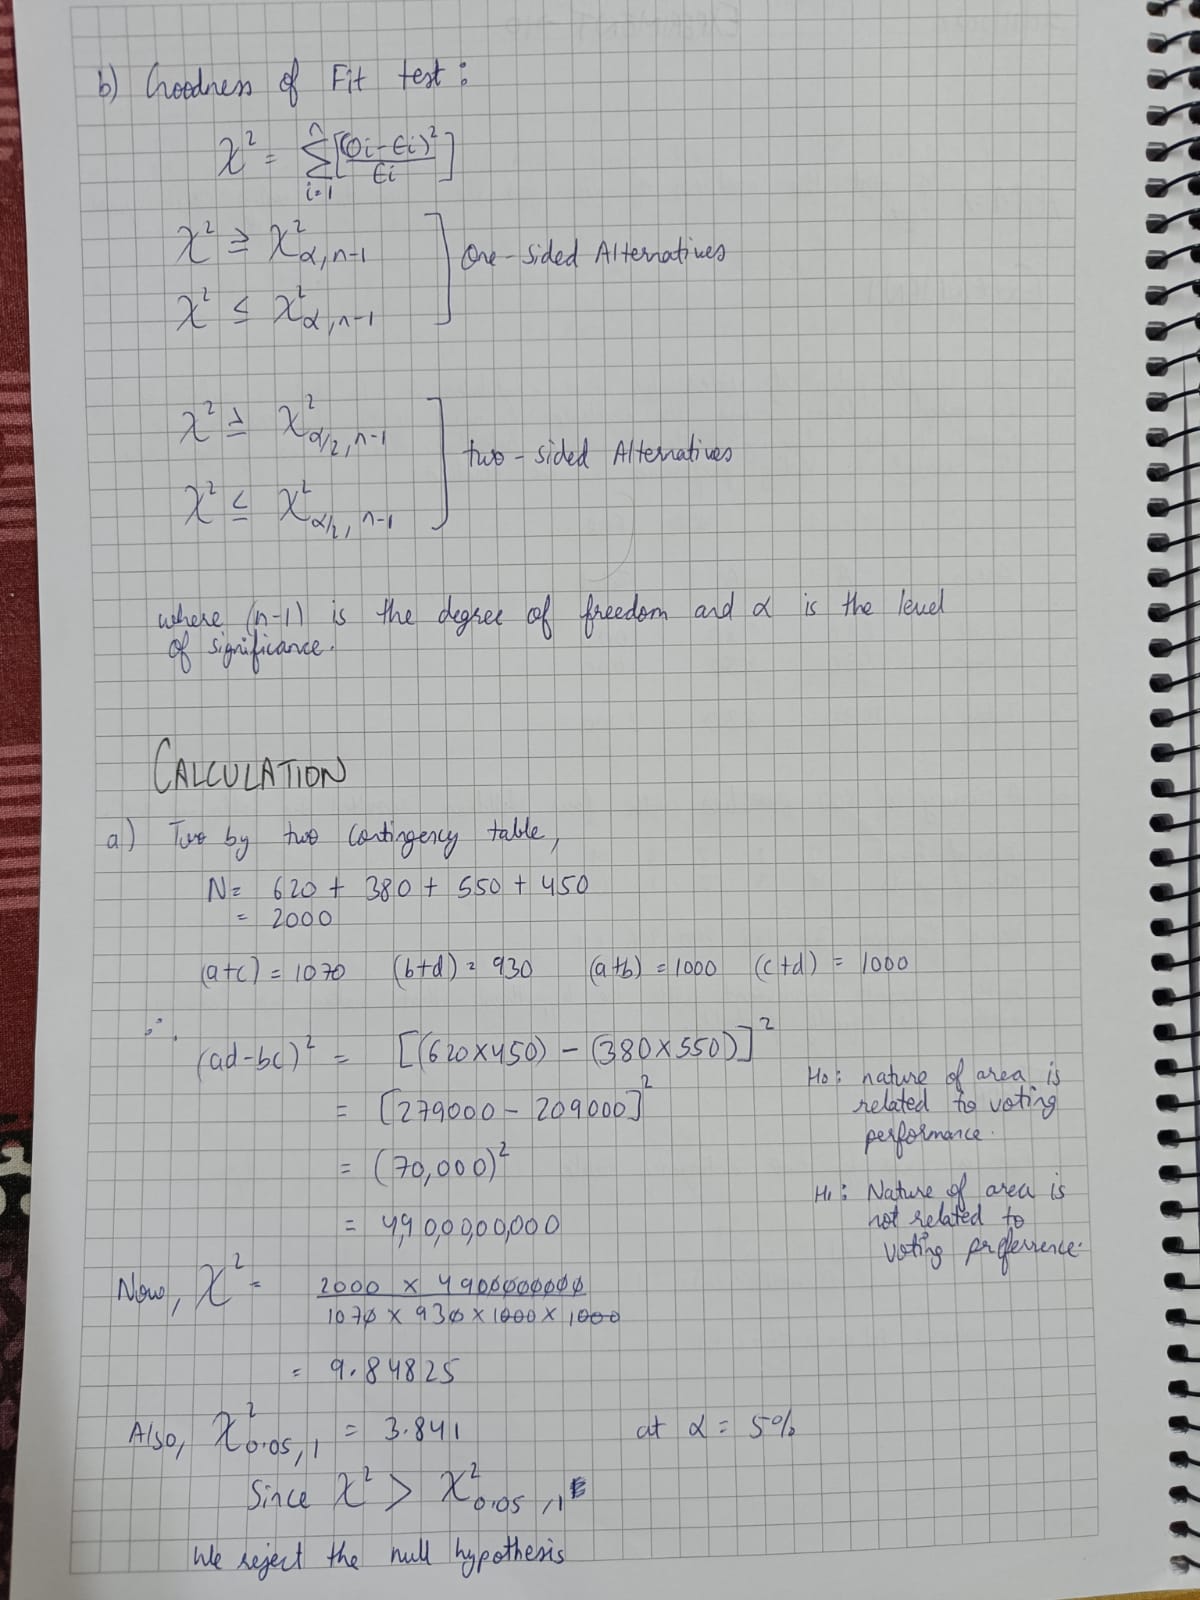 b) Goodness of Fit test:
χ² = Σ_{i=1}^{n} [(Oi-Ei)²/Ei]
χ² ≥ χ²_{α,n-1}
One-sided Alternatives
χ² ≤ χ²_{α,n-1}
χ² ≥ χ²_{α/2,n-1}
two-sided Alternatives
χ² ≤ χ²_{α/2,n-1}
where (n-1) is the degree of freedom and α is the level
of significance.
CALCULATION
a) Two by two contingency table,
N= 620 + 380 + 550 + 450
= 2000
(a+c) = 1070 (b+d) = 930 (a+b) = 1000 (c+d) = 1000
∴ (ad-bc)² = [(620×450) - (380×550)]²
= [279000 - 209000]²
= (70,000)²
= 4,90,00,00,000
H₀: nature of area is
related to voting
performance.
H₁: Nature of area is
not related to
voting prefernence.
Now, χ² = 2000 × 4900000000 / 1070 × 930 × 1000 × 1000
= 9.84825
Also, χ²_{0.05,1} = 3.841 at α = 5%
Since χ² > χ²_{0.05,1}
We reject the null hypothesis